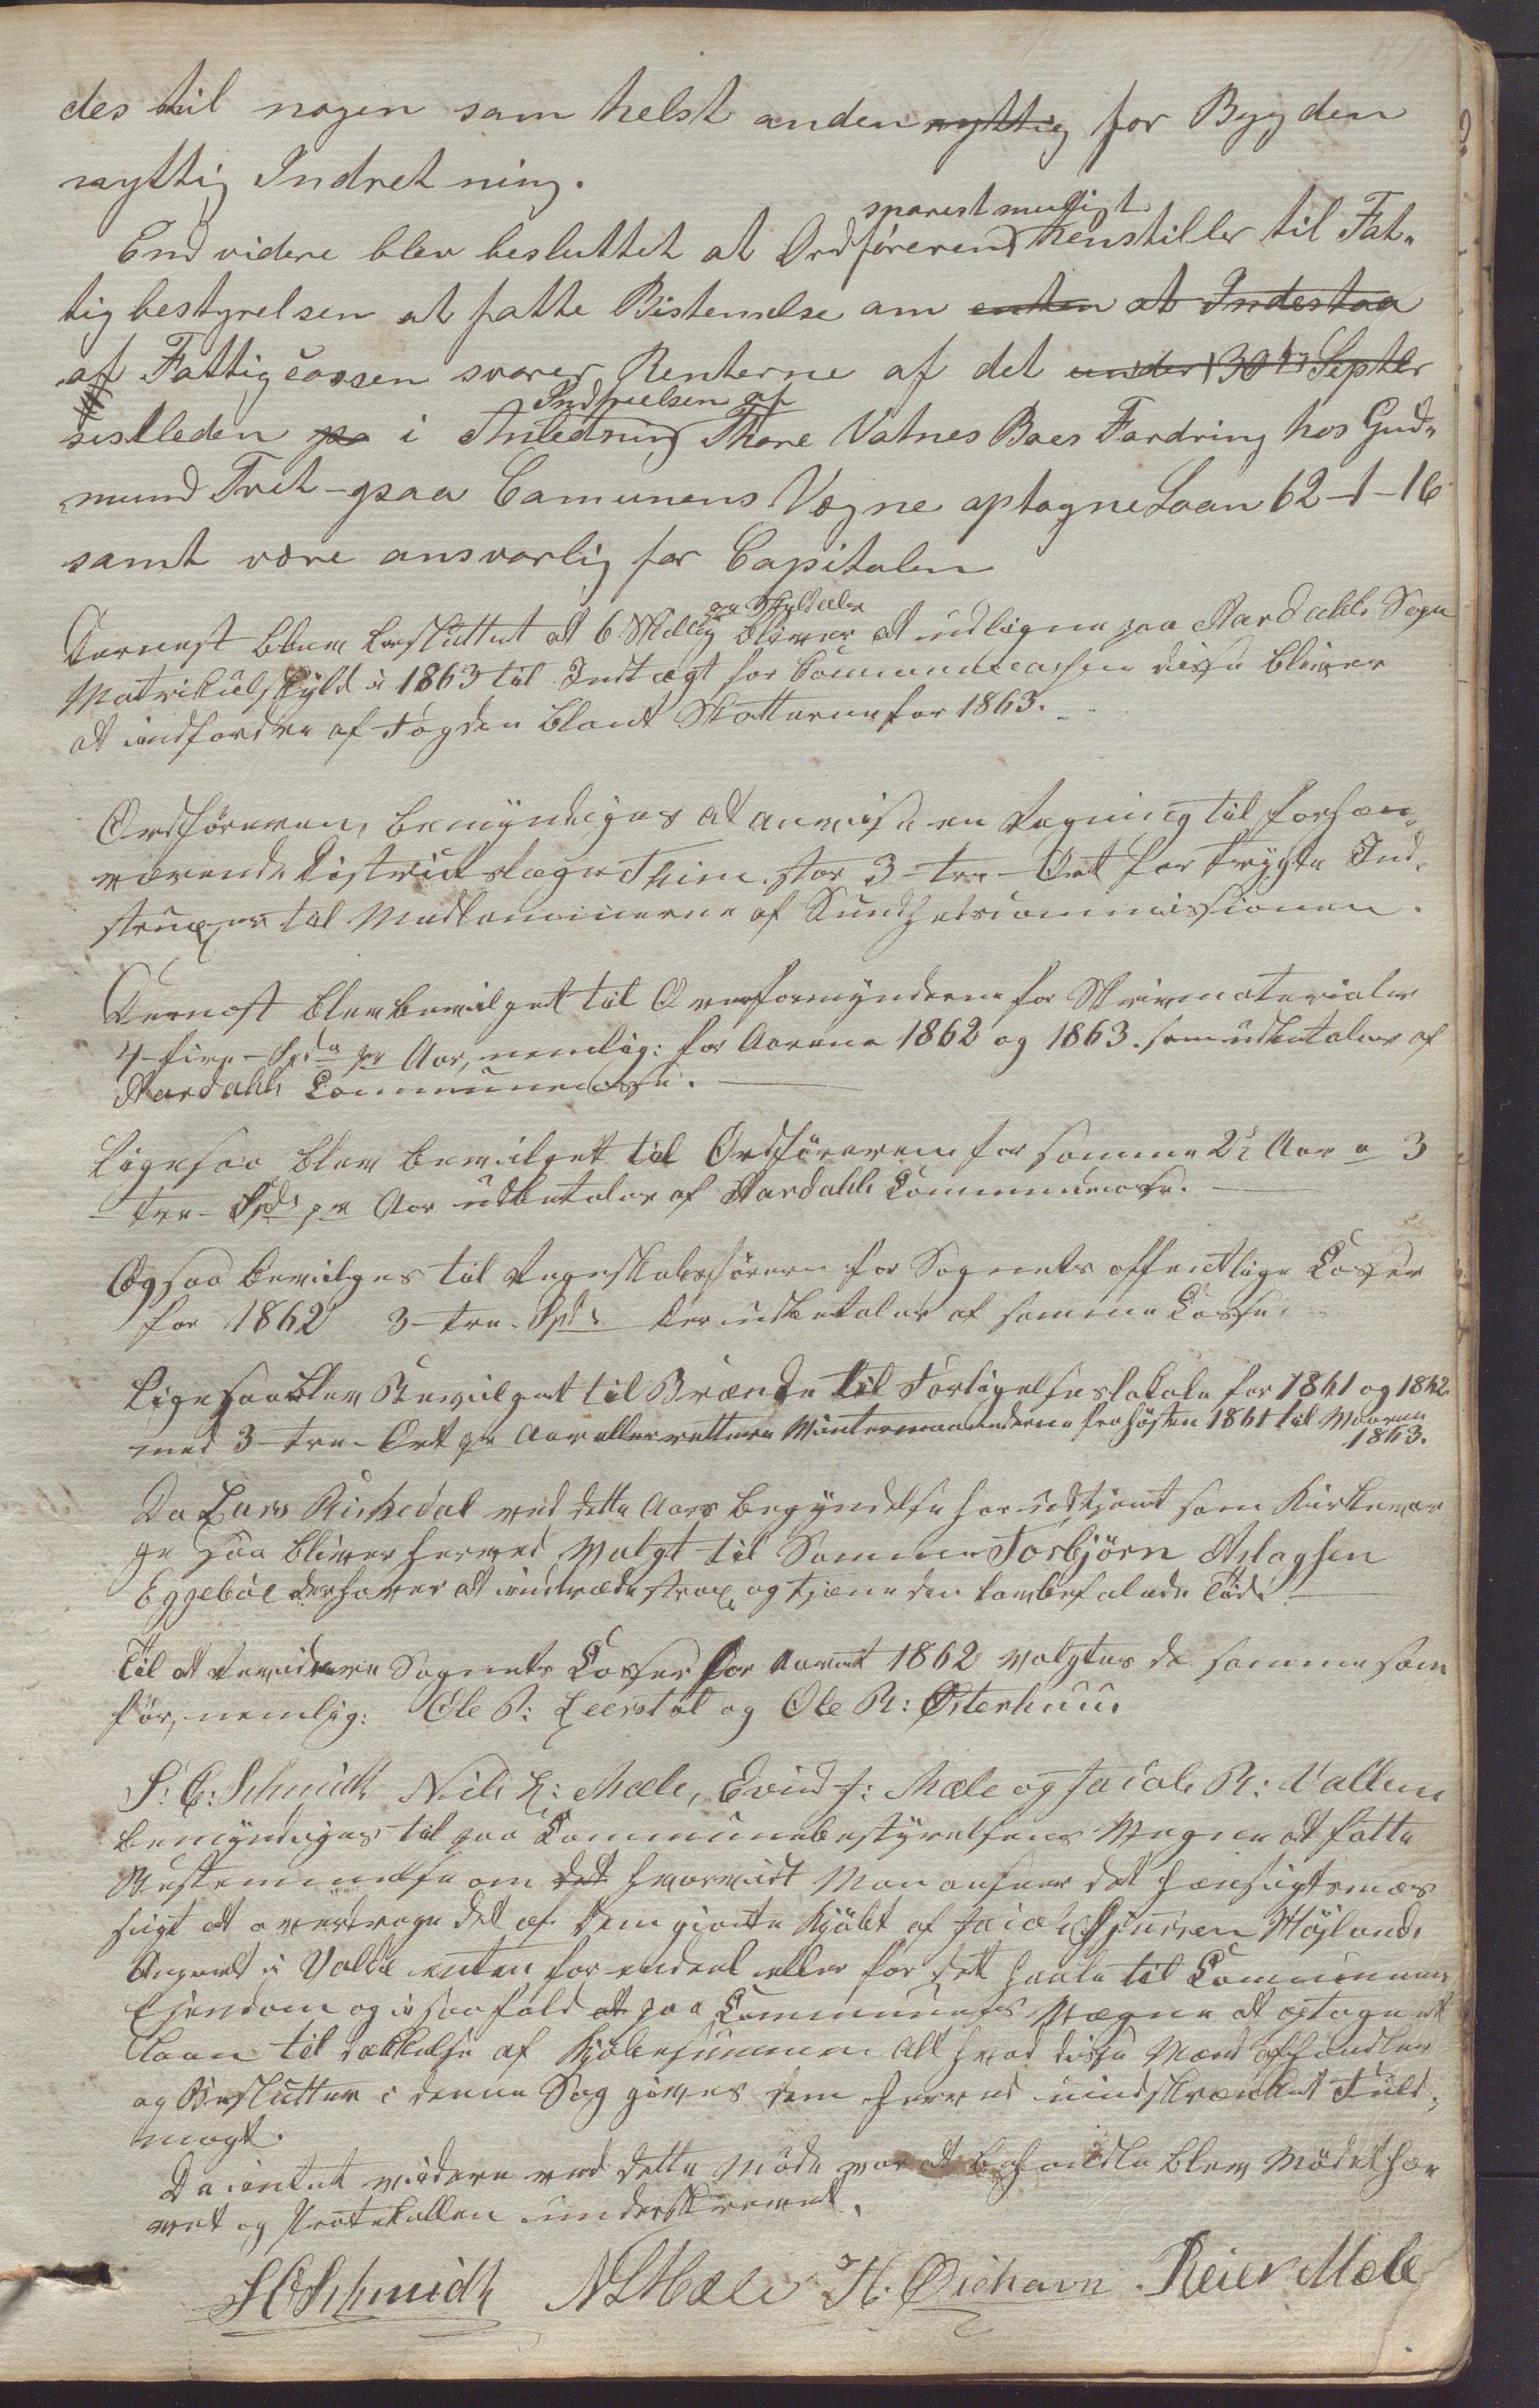 des til nogen som helst anden nyttig for Bygden
nyttig Indretning.
snarest muligt
End videre blev besluttet at Ordföreren henstiller til Fat„
tigbestyrelsen at fatte Bistemelse om enten at Indestaa
at Fattigcassen svarer Renterne af det under 30te Septbr
Indfrielsen af
sistleden pa i Anledning Thore Vatnes Boes Fordring hos Gud„
mund Tret- paa Comunens Vegne optagne Laan 62-1-16
samt være ansvarlig for Capitalen
pr Skylddaler
Dernest blev besluttet at 6 Skilling bliver at udligne paa Aardahls Sogns
Matrikulskyld i 1863 til Indtægt for Communecassen disse bliver
at indfordre af Fogden blandt Skatterne for 1863.
Ordföreren, bemyndiges at anvise en Regning til forhen„
værende Districtslæge Thim stor 3-tre- Ort for trygte Ind„
struxer til Medlemmerne af Sundhedscommissionen.
Dernest blev bevilget til Overformynderne for Skrivmaterialer
4-fire-Spd pr Aar, nemlig: for Aarene 1862 og 1863. som udbetales af
Aardahls Communecasse.
Ligesaa blev bevilgett til Ordföreren for samme 2 Aar a 3
-tre- Spd pr Aar udbetales af Aardahls Communecasse.
Ogsaa bevilges til Regnskabsföreren for Sognets offentlige Casser
for 1862 3-tre Spd der udbetales af samme Casse.
Ligesaa blev Bevilget til Brænde til Forligelseslokale for 1861 og 1862
med 3-tre- Ort pr Aar eller rettere Vintermaanderne fra Hösten 1861 til Vaaren
1863.
Da Lars Riskedal ved dette Aars begyndelse har udtjent som Kirkevær
ge saa bliver herved Valgt til Samme Torbjörn Aslagsen
Eggeböe der haver at indtræde strax og tjene den lovbefalede Tid.
Til at revidere Sognets Casser for Aaret 1862 valgtes de samme som
för, nemlig: Ole P: Leerstöl og Ole R: Østerhuus
S. C: Schmidt Niels L: Mæle, Evind J: Mæle og Jacob R: Valleen
bemyndiges til paa Communebestyrelsens Vegne at fatte
Bestemmelse om det hvorvidt Man anseer det hensigtsmæs
sigt at overdrage det af dem giorte Kjöbt af Jacob Sjursen Höjlands
i Valde enten for endeel eller for det heele til Communens
Eiendom og i saa fald at paa Communens Vegne at optage et
Laan til dækkelse af Kjöbesummen Alt hvad disse Mænd afhandler
og Beslutter i denne Sag gives dem herved uindskrænket Fuld„
magt.
Da intet videre ved dette Möde var at behandle blev Mödet hæ
vet og Protokollen underskrevet.
S C Schmidt N L Mæle H. Øiehavn Reier Mæle